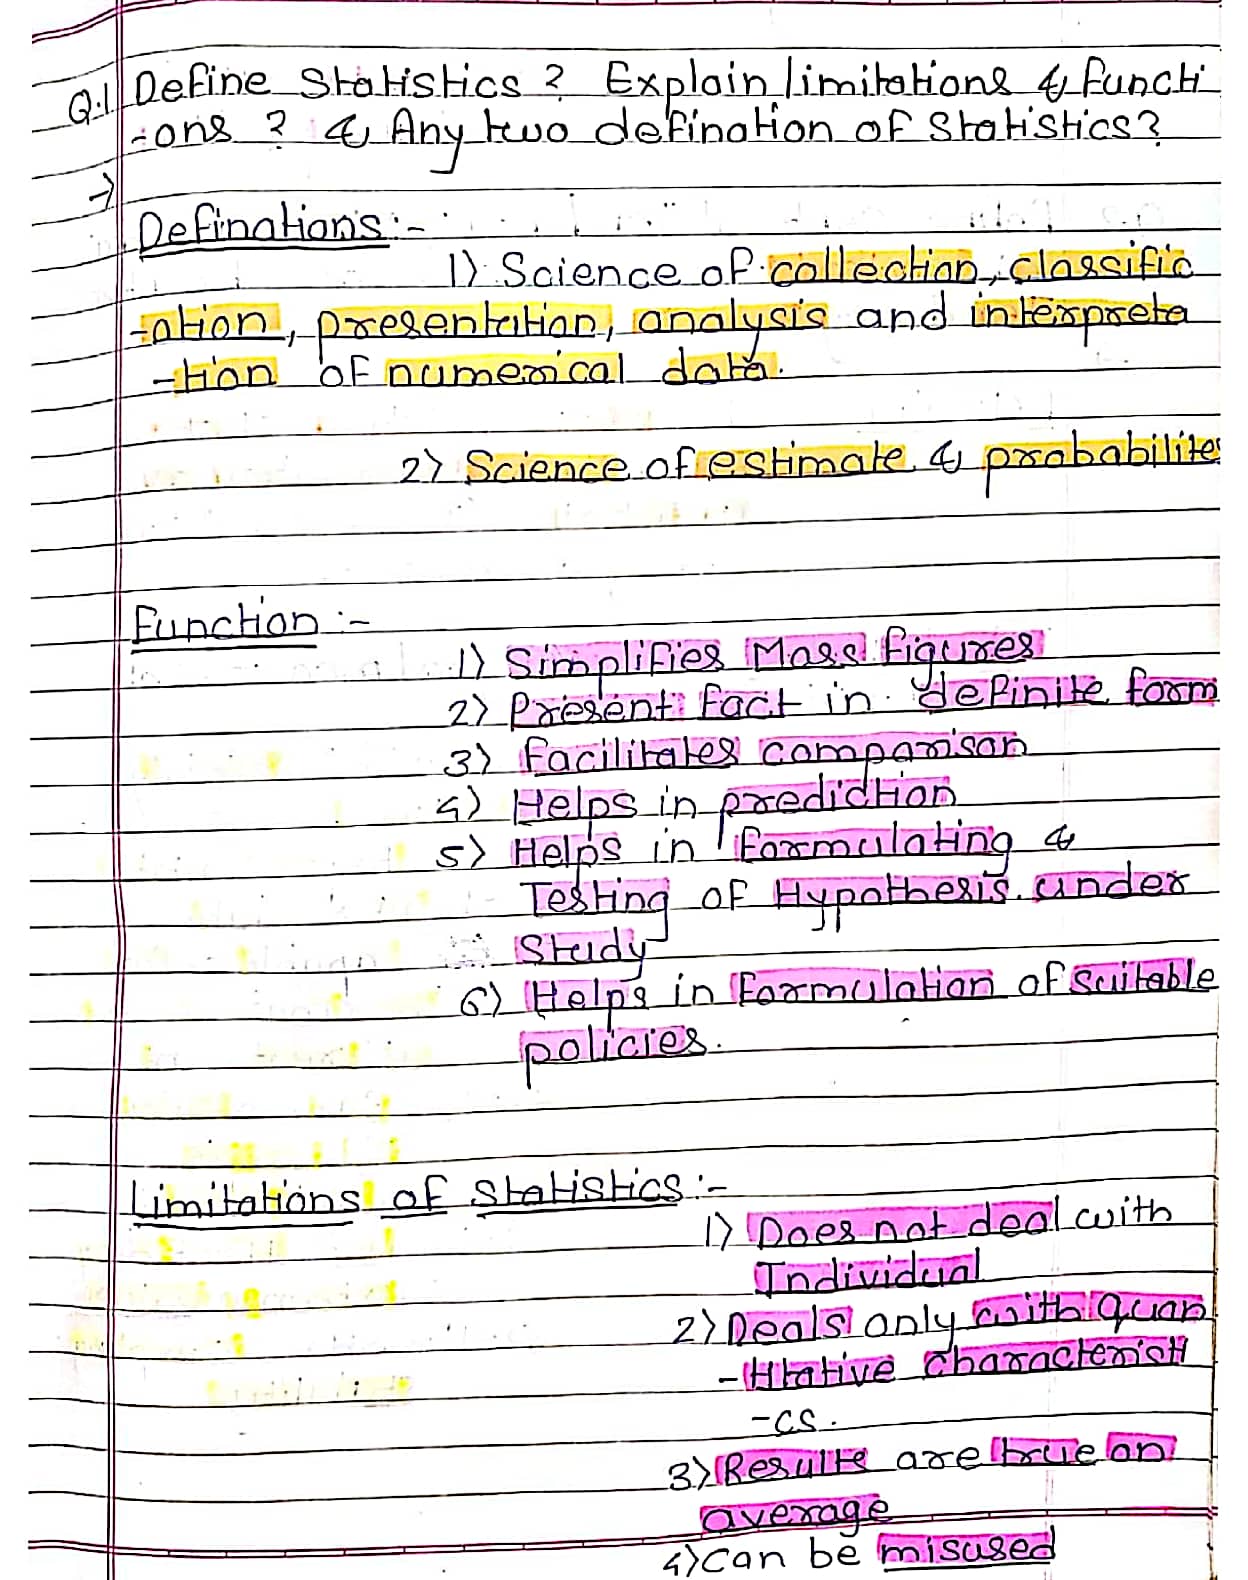 Q.1 Define Statistics ? Explain limitations & functi
-ons ? & Any two defination of Statistics?
→
Definations:-
1) Science of collection, classific
-ation, presentation, analysis and interpreta
-tion of numerical data.
2) Science of estimate & probabilites
Function :-
1) Simplifies Mass figures
2) Present fact in definite form
3) facilitates comparison
4) Helps in prediction
5) Helps in formulating &
Testing of Hypothesis under
Study
6) Helps in formulation of suitable
policies.
Limitations of Statistics :-
1) Does not deal with
Individual
2) Deals only with quan
-titative characteristi
-cs.
3) Results are true on
average
4) Can be misused